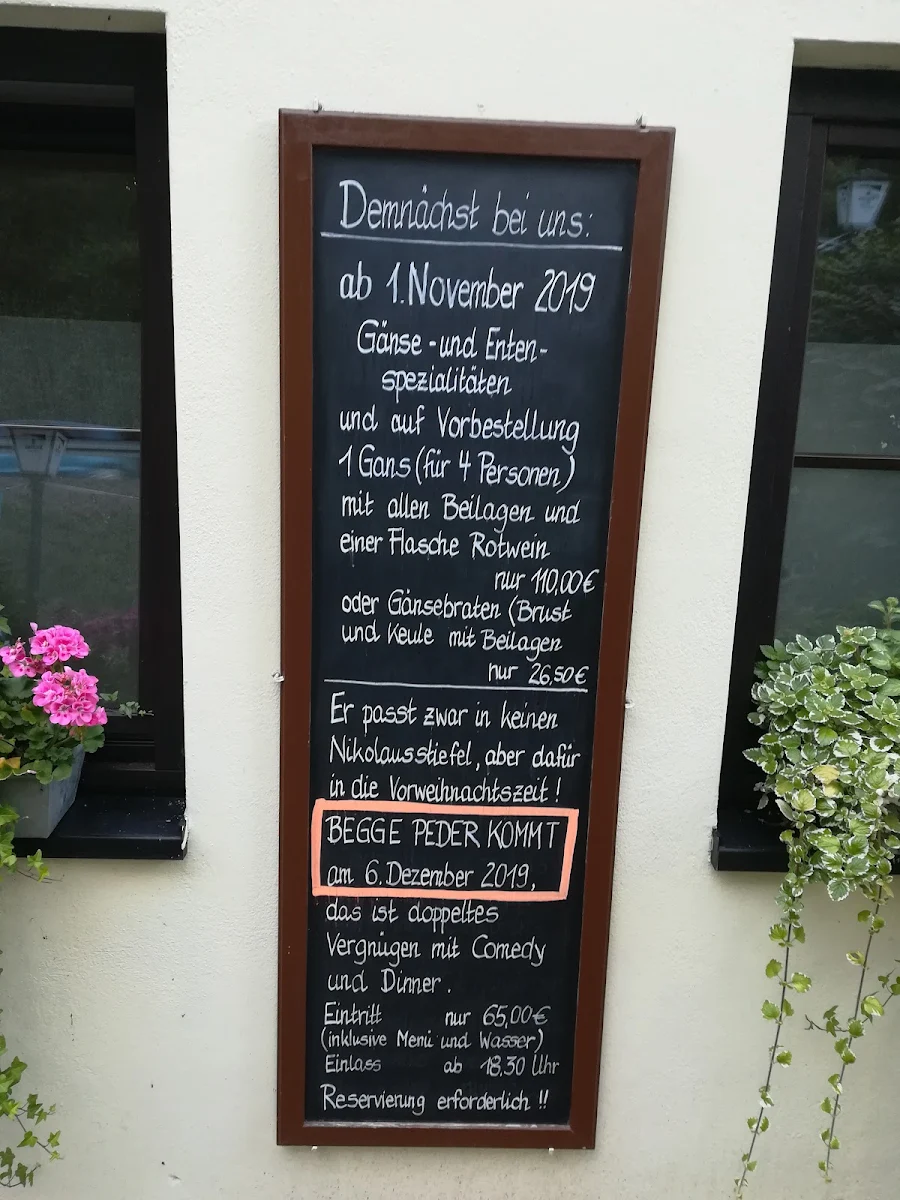 Demnächst bei uns:
ab 1. November 2019
Gänse - und Enten-
spezialitäten
und auf Vorbestellung
1 Gans (für 4 Personen)
mit allen Beilagen und
einer Flasche Rotwein
nur 110,00€
oder Gänsebraten (Brust
und Keule mit Beilagen
nur 26,50€
Er passt zwar in keinen
Nikolausstiefel, aber dafür
in die Vorweihnachtszeit!
BEGGE PEDER KOMMT
am 6. Dezember 2019,
das ist doppeltes
Vergnügen mit Comedy
und Dinner.
Eintritt nur 65,00€
(inklusive Menü und Wasser)
Einlass ab 18.30 Uhr
Reservierung erforderlich !!